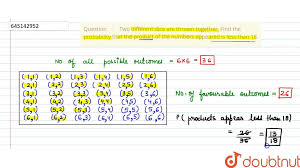 645142952
Question: Two different dice are thrown together. Find the
probability at the product of the numbers appeared is less than 18
No of all possible outcomes = 6×6 = 36
(1,1) (1,2) (1,3) (1,4) (1,5) (1,6)
(2,1) (2,2) (2,3) (2,4) (2,5) (2,6)
(3,1) (3,2) (3,3) (3,4) (3,5) (3,6)
(4,1) (4,2) (4,3) (4,4) (4,5) (4,6)
(5,1) (5,2) (5,3) (5,4) (5,5) (5,6)
(6,1) (6,2) (6,3) (6,4) (6,5) (6,6)
No. of favourable outcomes = 26
P (products appear less than 18)
= 26/36 = 13/18
doubtnut